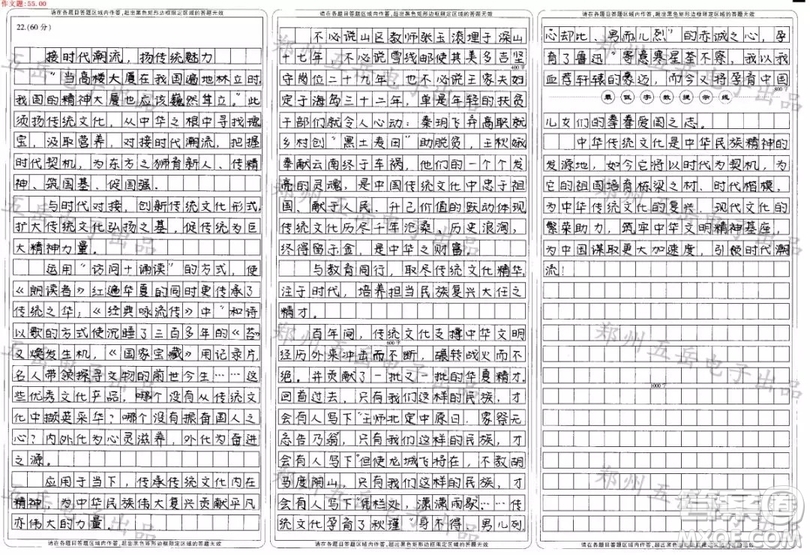 作文题:55.00
请在各题目答题区域内作答,超出黑色矩形边框限定区域的答题无效
22.(60分)
接时代潮流，扬传统魅力
“当高楼大厦在我国遍地林立时，
我国的精神大厦也应该巍然耸立。”此
须扬传统文化，从中华之根中寻找瑰
宝，汲取营养，对接时代潮流，把握
时代契机，为东方之狮育新人、传精
神、筑国基、促国强。
与时代对接，创新传统文化形式，
扩大传统文化弘扬之基，促传统为巨
大精神力量。
运用“访问+诵读”的方式，使
《朗读者》红遍华夏的同时更传承了
传统之华；《经典咏流传》中“和诗
以歌的方式使沉睡了三百多年的《苔》
又焕发生机，《国家宝藏》用记录片，
名人带领探寻文物的前世今生……这
些优秀文化产品，哪个没有从传统文
化中撷英采华？哪个没有振奋国人之
心？内外化为心灵滋养，外化为奋进
之源。
应用于当下，传承传统文化内在
精神，为中华民族伟大复兴贡献平凡
亦伟大的力量。
请在各题目答题区域内作答,超出黑色矩形边框限定区域的答题无效
请在各题目答题区域内作答,超出黑色矩形边框限定区域的答题无效
不必说山区教师张玉滚埋于深山
十七年，不必说雪线邮使其美多吉坚
守岗位二十九年，也不必说王家夫妇
定于海岛三十二年，单是年轻的扶贫
干部们就令人心动：秦玥飞弃高职就
乡村创“黑土麦田”助脱贫，王秋娥
奉献云南终于车祸，他们的一个个发
亮的灵魂，是中国传统文化中忠于祖
国、献于人民，升己价值的跃动体现，
传统文化历尽千年沧桑，历史浪淘，
终得留于金，是中华之财富。
与教育同行，取尽传统文化精华，
注于时代，培养担当民族复兴大任之
精才。
百年间，传统文化支撑中华文明
经历外来冲击而不断，辗转战火而不
600字
绝。并贡献了一批又一批的华夏精才。
回首过去，只有我们这样的民族，才
会有人写下“王师北定中原日，家祭无
忘告乃翁，只有我们这样的民族，才
会有人写下“但使龙城飞将在，不教胡
马度阴山，只有我们这样的民族，才
会有人写下“凭栏处，潇潇雨歇……传
统文化孕育了秋瑾“身不得，男儿列
请在各题目答题区域内作答,超出黑色矩形边框限定区域的答题无效
请在各题目答题区域内作答,超出黑色矩形边框限定区域的答题无效
心却比、男而儿烈”的赤诚之心，孕
育了鲁迅“寄意寒星荃不察，我以我
血荐轩辕的鲁迅，而今又将孕育中国
最低字数提示线
儿女们的拳拳爱国之志。
中华传统文化是中华民族精神的
发源地，如今它将以时代为契机，为
它的祖国培育栋梁之材，时代楷模，
为中华传统文化的复兴，现代文化的
繁荣助力，筑牢中华文明精神基座，
为中国谋取更大加速度，引领时代潮
流！
1000字
请在各题目答题区域内作答,超出黑色矩形边框限定区域的答题无效
郑州五岳电子出品
MXQE.COM